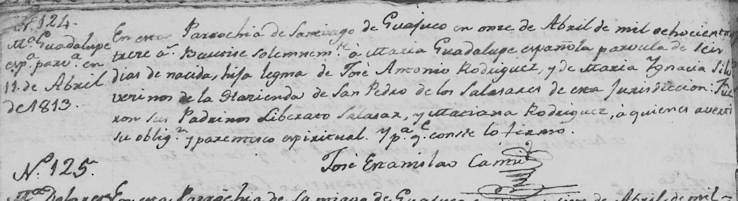 N. 124.
Mª Guadalupe
espª parvª en
11 de Abril
de 1813.
En esta Parrochia de Santiago de Guajuco en onze de Abril de mil ochocientos
trece aˢ Bautise solemnemᵗᵉ à Maria Guadalupe española parvula de seis
dias de nacida, hija legma de José Antonio Rodriguez, y de Maria Ygnacia Sil
verinos de la Hazienda de San Pedro de los Salazares de esta Jurisdiccion: Fue
ron sus Padrinos Liberato Salazar, y Mariana Rodriguez, à quienes averti
su obligⁿ y parentesco espiritual. Y pª qᵉ conste lo firmo.
José Estanislao
Nº 125.
En esta Parrochia de de Guajuco de Abril de mil